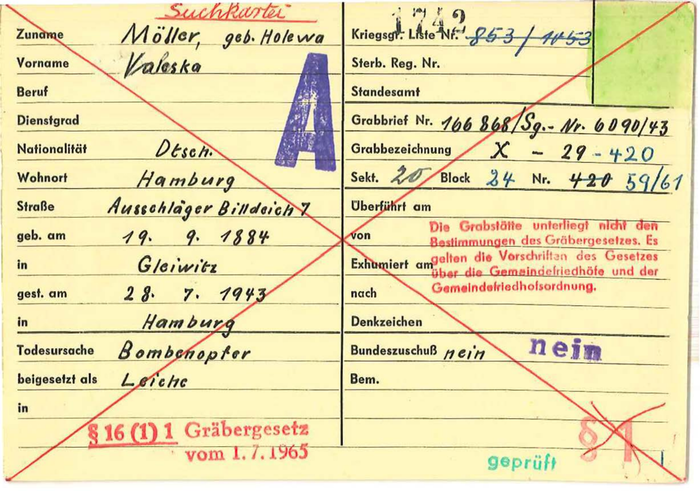 Suchkartei
Zuname Möller, geb. Holewa
Vorname Valeska
Beruf
Dienstgrad
Nationalität Dtsch.
Wohnort Hamburg
Straße Ausschläger Billdeich 7
geb. am 19. 9. 1884
in Gleiwitz
gest. am 28. 7. 1943
in Hamburg
Todesursache Bombenopfer
beigesetzt als Leiche
in
A
§ 16 (1) 1 Gräbergesetz
vom 1.7.1965
1742
Kriegsgr. Liste Nr. 853/1053
Sterb. Reg. Nr.
Standesamt
Grabbrief Nr. 166868/Sg.-Nr. 6090/43
Grabbezeichnung X - 29 - 420
Sekt. 20 Block 24 Nr. 420 59/61
Überführt am
von
Exhumiert am
nach
Die Grabstätte unterliegt nicht den
Bestimmungen des Gräbergesetzes. Es
gelten die Vorschriften des Gesetzes
über die Gemeindefriedhöfe und der
Gemeindefriedhofsordnung.
Denkzeichen
Bundeszuschuß nein nein
Bem.
§ 1
geprüft